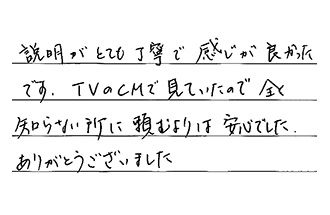 説明がとても丁寧で感じが良かった
です。TVのCMで見ていたので全く
知らない所に頼むよりは安心でした。
ありがとうございました